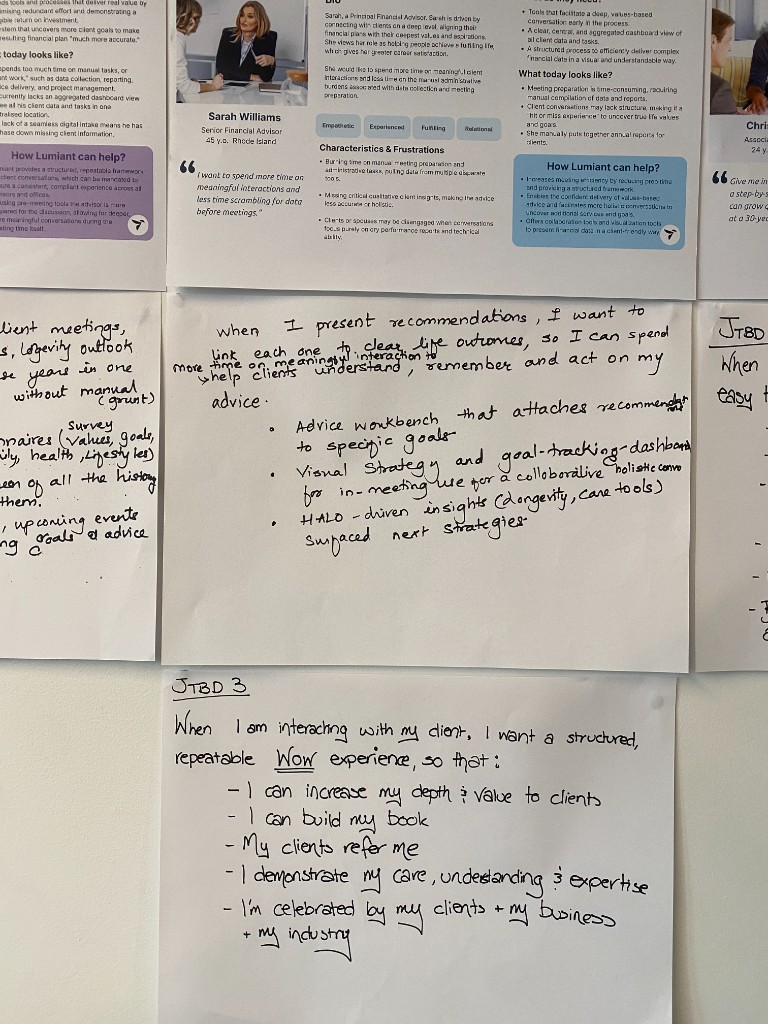 ds tools and processes that deliver real value by
imising redundant effort and demonstrating a
gible return on investment.
stem that uncovers more client goals to make
resulting financial plan "much more accurate."
today looks like?
pends too much time on manual tasks, or
nt work," such as data collection, reporting,
ice delivery, and project management.
currently lacks an aggregated dashboard view
ee all his client data and tasks in one
tralised location.
lack of a seamless digital intake means he has
hase down missing client information.
How Lumiant can help?
miant provides a structured, repeatable framework
client conversations, which can be mandated to
sure a consistent, compliant experience across all
visors and offices.
using pre-meeting tools the advisor is more
pared for the discussion, allowing for deeper,
re meaningful conversations during the
eting time itself.
Sarah Williams
Senior Financial Advisor
45 y.o. Rhode Island
“ I want to spend more time on
meaningful interactions and
less time scrambling for data
before meetings."
Bio
Sarah, a Principal Financial Advisor, Sarah is driven by
connecting with clients on a deep level, aligning their
financial plans with their deepest values and aspirations.
She views her role as helping people achieve a fulfilling life,
which gives her greater career satisfaction.
She would like to spend more time on meaningful client
interactions and less time on the manual administrative
burdens associated with data collection and meeting
preparation.
Empathetic Experienced Fulfilling Relational
Characteristics & Frustrations
• Burning time on manual meeting preparation and
administrative tasks, pulling data from multiple disparate
tools.
• Missing critical qualitative client insights, making the advice
less accurate or holistic.
• Clients or spouses may be disengaged when conversations
focus purely on dry performance reports and technical
ability.
• Tools that facilitate a deep, values-based
conversation early in the process.
• A clear, central, and aggregated dashboard view of
all client data and tasks.
• A structured process to efficiently deliver complex
financial data in a visual and understandable way.
What today looks like?
• Meeting preparation is time-consuming, requiring
manual compilation of data and reports.
• Client conversations may lack structure, making it a
"hit or miss experience" to uncover true life values
and goals.
• She manually puts together annual reports for
clients.
How Lumiant can help?
• Increases meeting efficiency by reducing prep time
and providing a structured framework.
• Enables the confident delivery of values-based
advice and facilitates more holistic conversations to
uncover additional services and goals.
• Offers collaboration tools and visualization tools
to present financial data in a client-friendly way.
Chris
Associa
24 y.
“ Give me in
a step-by-s
can grow c
at a 30-yea
lient meetings,
s, Longevity outlook
se years in one
without manual
(grunt)
Survey
nnaires (values, goals,
ily, health, Lifestyles)
een of all the history
them.
, upcoming events
ng goals & advice
When I present recommendations, I want to
link each one to clear life outcomes, so I can spend
more time on meaningful interaction to
help clients understand, remember and act on my
advice.
• Advice workbench that attaches recommendation
to specific goals
• Visual Strategy and goal-tracking-dashboard
for in-meeting use for a colloborative holistic convo
• HALO-driven insights (longevity, care tools)
surfaced next strategies
JTBD
When
easy t
JTBD 3
When I am interacting with my client, I want a structured,
repeatable Wow experience, so that:
- I can increase my depth & value to clients
- I can build my book
- My clients refer me
- I demonstrate my care, understanding & expertise
- I'm celebrated by my clients + my business
+ my industry